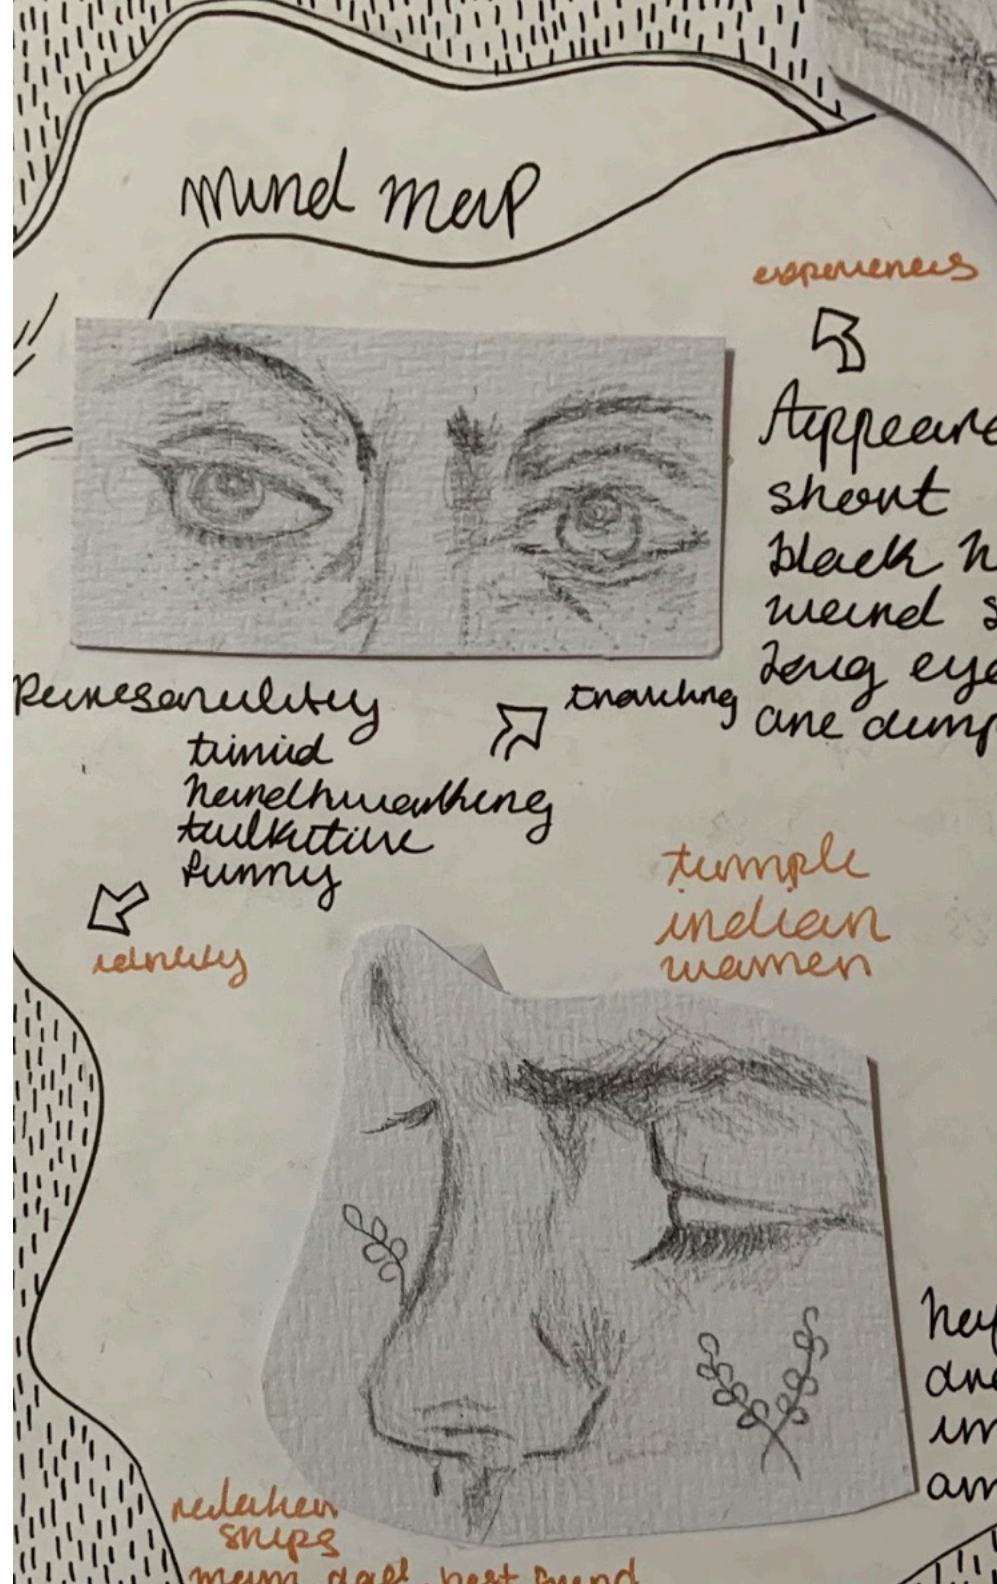 mind map
experiences
Appeare
short
black h
weird s
long eye
are dump
Personality
timid
hardhworking
talkative
funny
identity
temple
indian
women
hey
dre
im
am
relation
ships
mum dad best friend